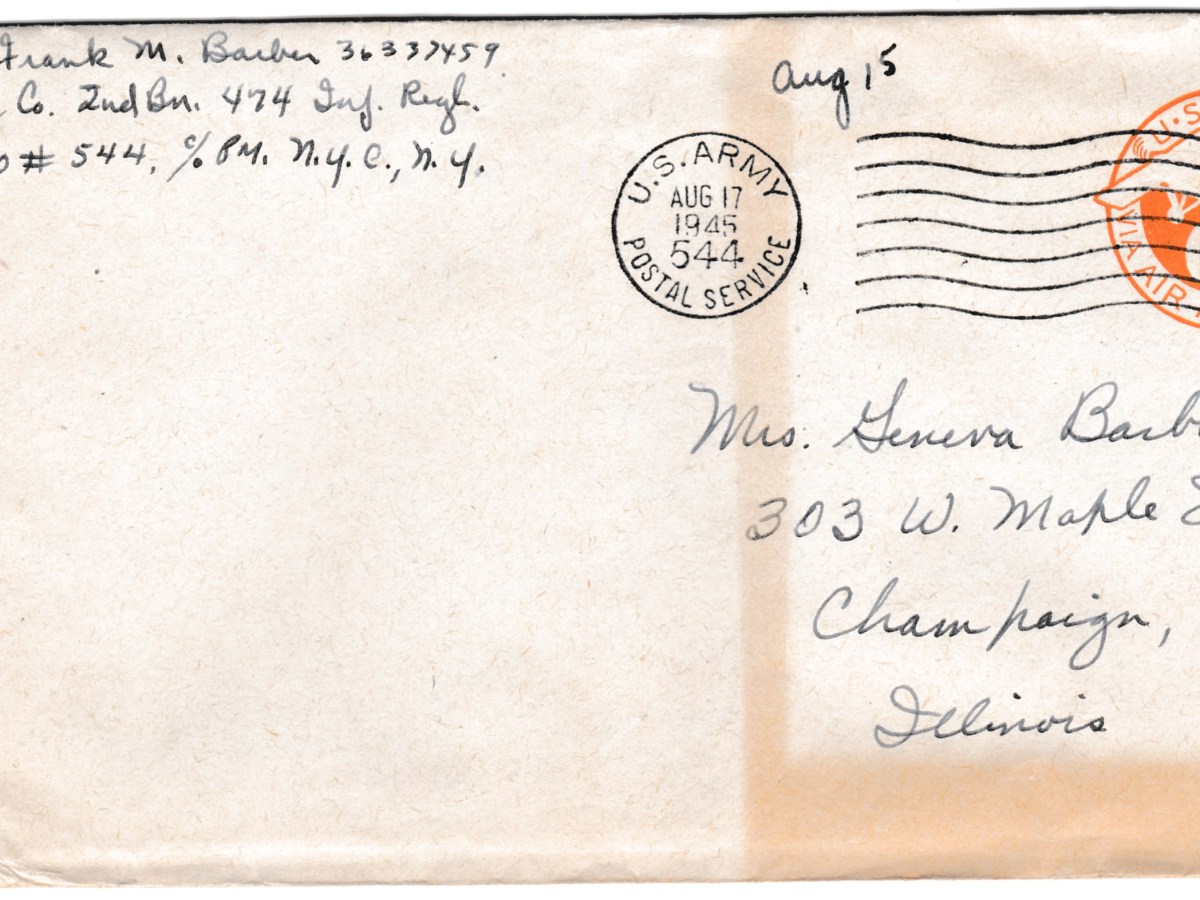 Frank M. Barber 36337459
Co. 2nd Bn. 474 Inf. Regt.
# 544, c/o PM. N.Y.C., N.Y.
Aug 15
U.S. ARMY
AUG 17
1945
544
POSTAL SERVICE
U.S
VIA AIR
Mrs. Geneva Barb
303 W. Maple
Champaign,
Illinois